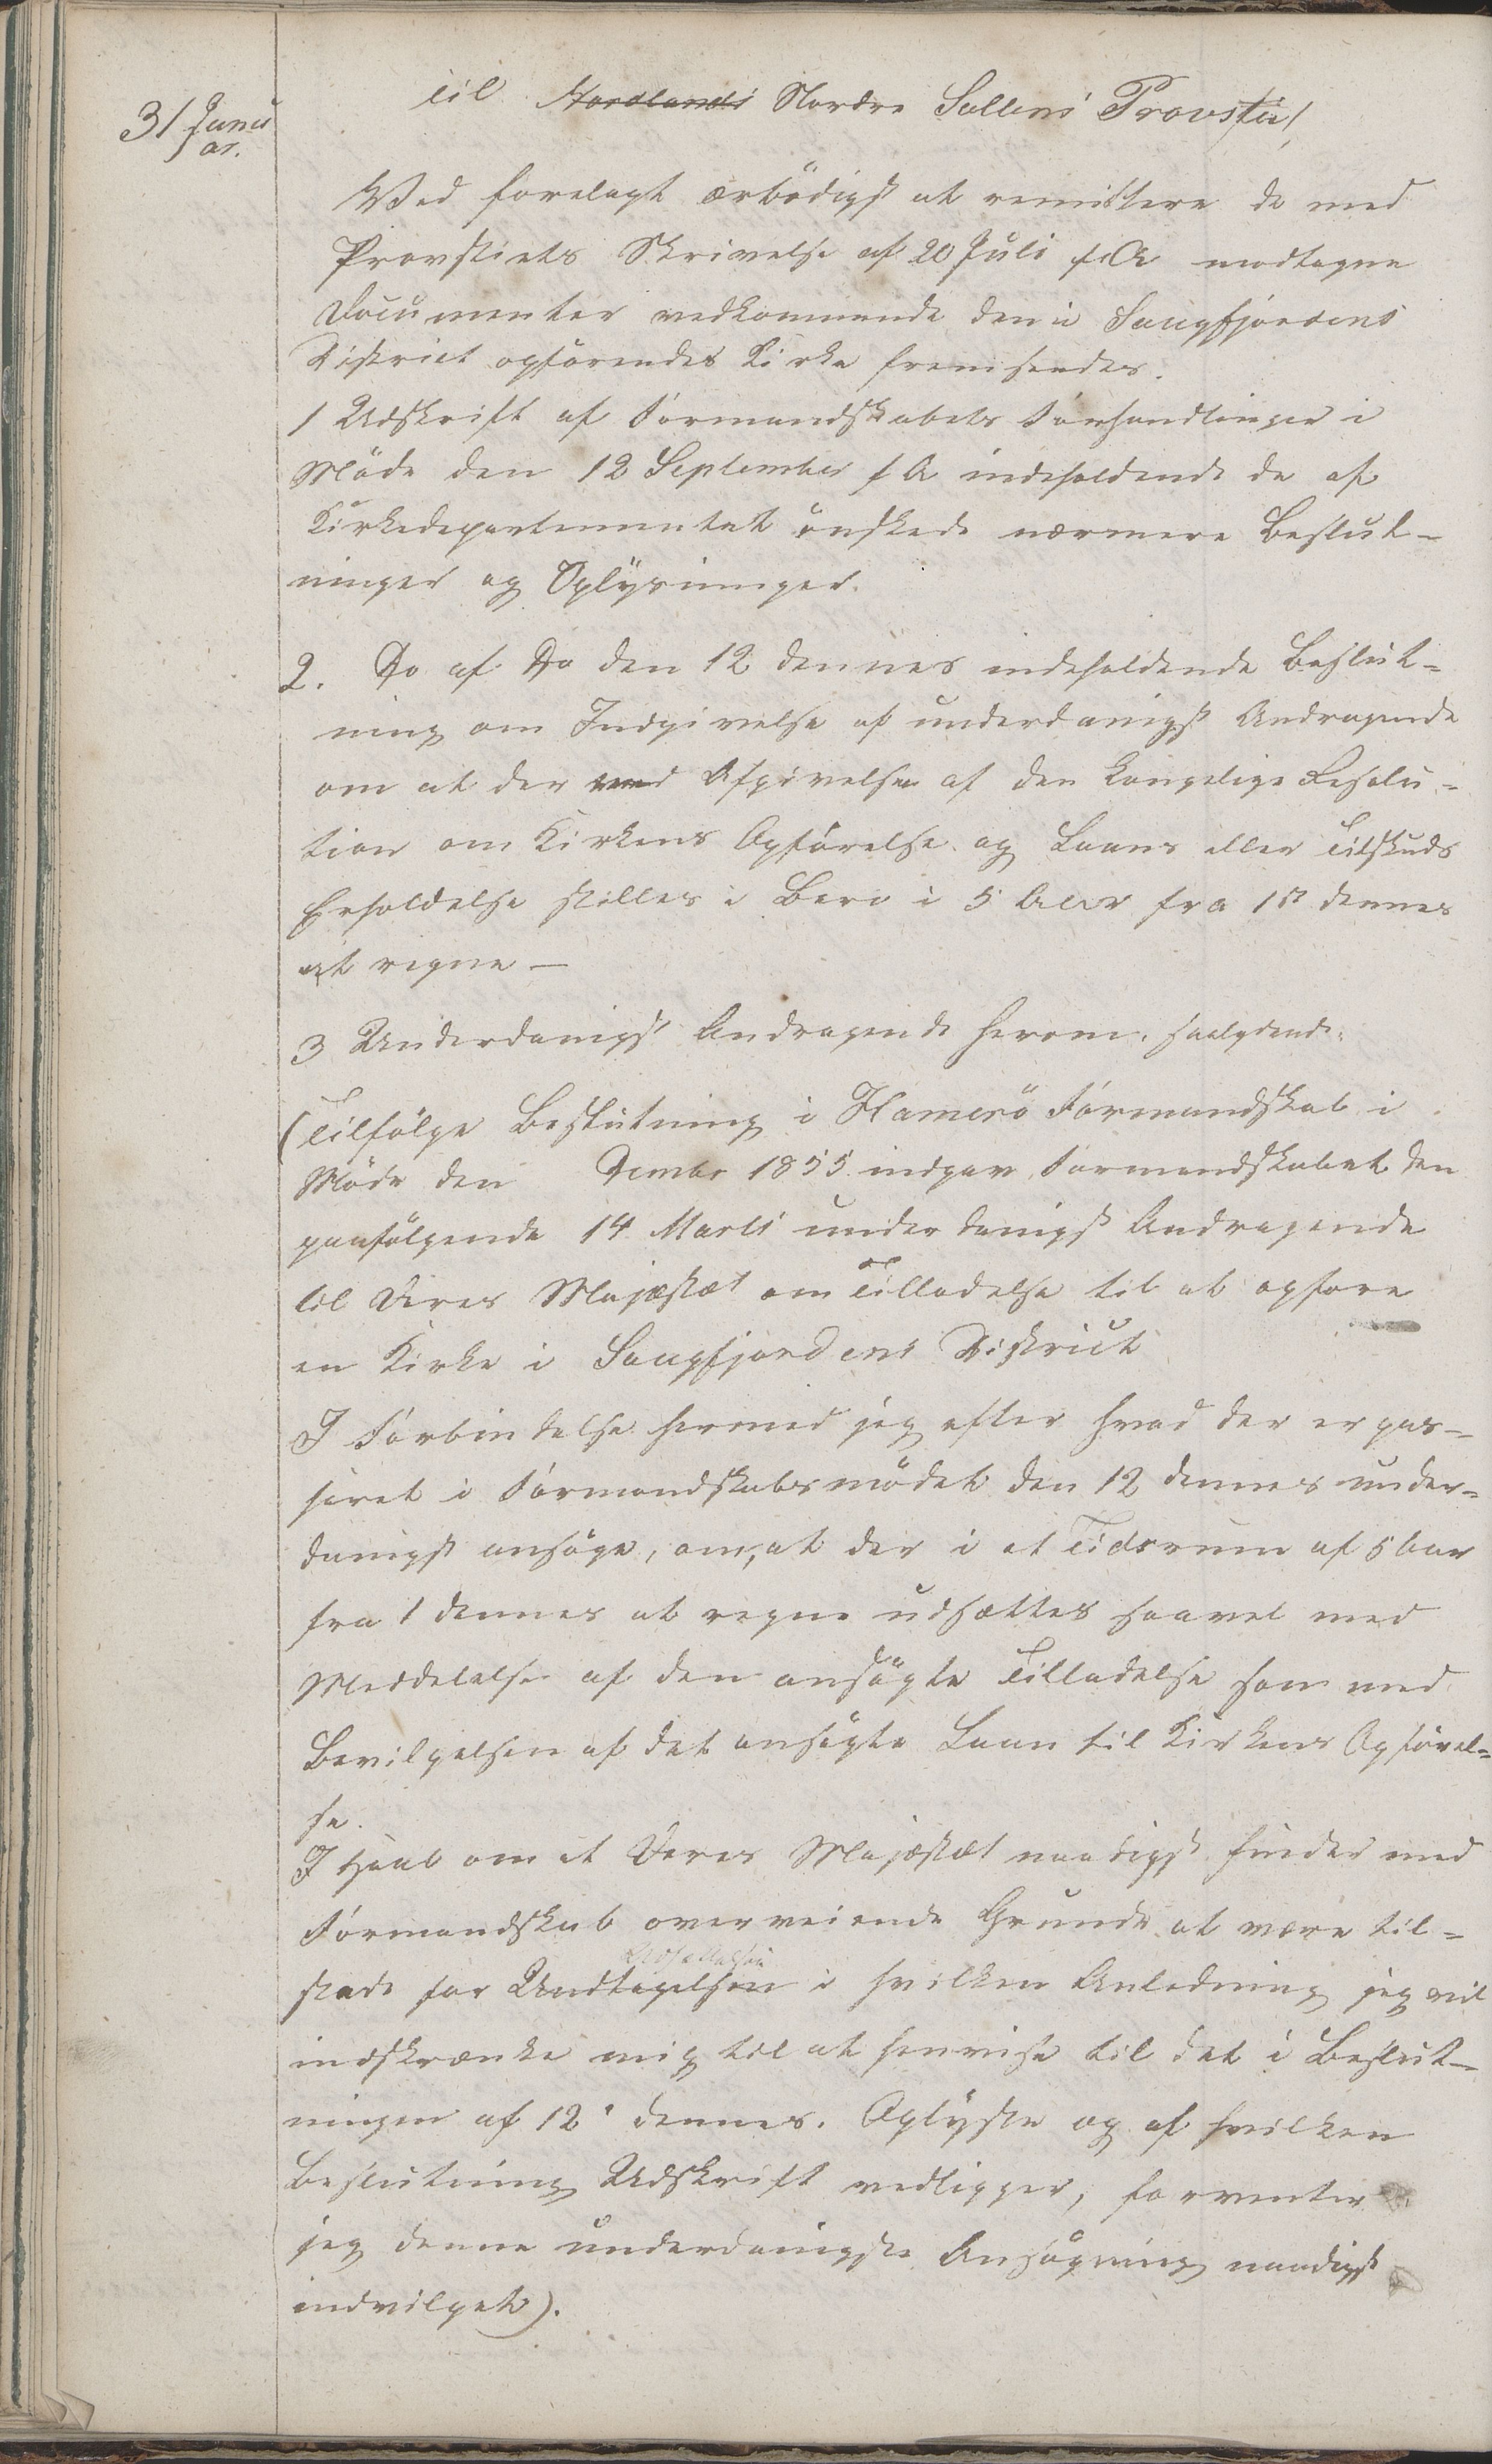 31 Janu
ar.
Til Nordlands Nordre Saltens Provsti!
Ved forelagt ærbödigst at remittere de med
Provstiets Skrivelse af 20 Juli f A modtagne
Documenter vedkommende den i Sangfjordens
District opförendes Kirke fremsendes.
1 Udskrift af Formandskabets Forhandlinger i
Möde den 12 September f A indeholdende de af
Kirkedepartementet önskede nærmere Beslut-
ninger og Oplysninger.
2. Do af Do den 12 dennes indeholdende Beslut-
ning om Indgivelse af underdanigst Andragende
om at der med Afgivelsen af den Kongelige Resolu-
tion om Kirkens Opförelse og Laans eller Tilskuds
Erholdelse stilles i Bero i 5 Aar fra 1st dennes
at regne -
3 Underdanigst Andragende herom, saalydende:
(Tilfölge Beslutning i Hamerö Formandskab i
Möde den Decmbr 1855 indgav Formandskabet den
paafölgende 14 Marts underdanigst Andragende
til Deres Majestæt om Tilladelse til at opföre
en Kirke i Sangfjordens District
I Forbindelse hermed jeg efter hvad der er pas-
seret i Formandskabsmödet den 12 dennes under-
danigst ansöge, om, at der i et Tidsrum af 5 Aar
fra 1 dennes at regne udsættes saavel med
Meddelelse af den ansögte Tilladelse som med
Bevilgelsen af det ansögte Laan til Kirkens Opförel-
se.
I Haab om at Deres Majestæt naadigst finder med
Formandskab overveiende Grunde at være til-
stæde for Undtagelsen Udsættelsen i hvilken Anledning jeg vil
indskrænke mig til at henvise til det i Beslut-
ningen af 12' dennes. Oplyste og af hvilken
Beslutning Udskrift vedligger, forventer
jeg denne underdanigste Ansögning naadigst
indvilget).